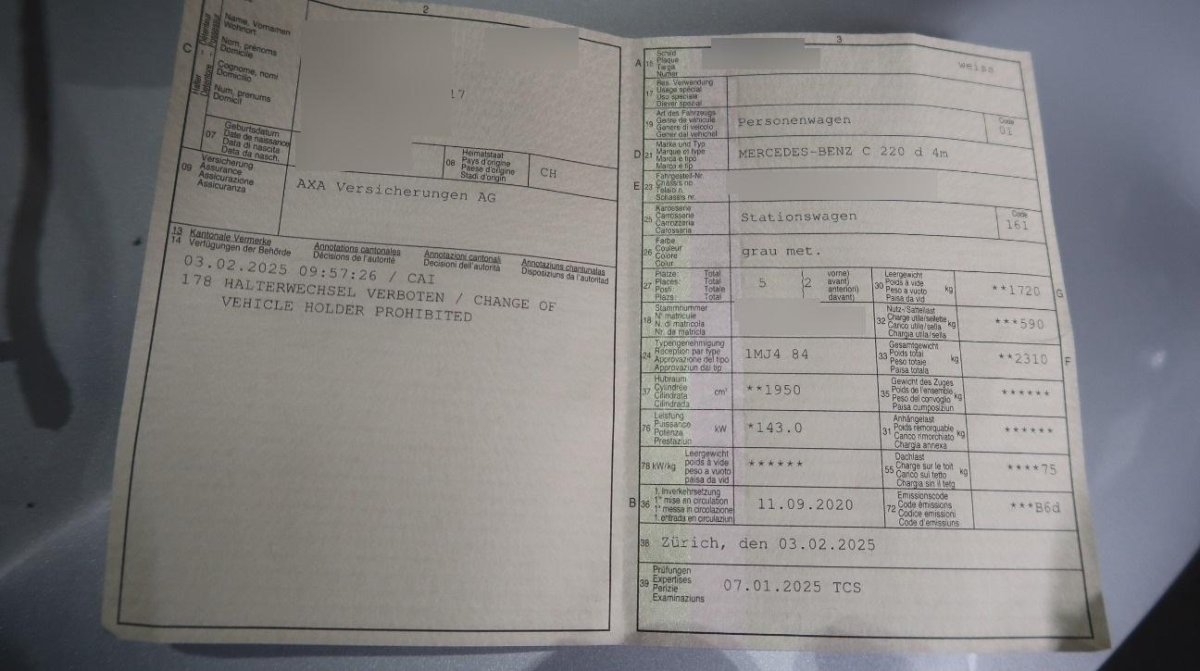 2
C
Halter - Détenteur
Detentore - Possessur
Name, Vornamen
Wohnort
Nom, prénoms
Domicile
Cognome, nomi
Domicilio
Num, prenums
Domicil
17
07
Geburtsdatum
Date de naissance
Data di nascita
Data da nasch.
08
Heimatstaat
Pays d'origine
Paese d'origine
Stadi d'origin
CH
09
Versicherung
Assurance
Assicurazione
Assicuranza
AXA Versicherungen AG
13
14
Kantonale Vermerke
Verfügungen der Behörde
Annotations cantonales
Décisions de l'autorité
Annotazioni cantonali
Decisioni dell'autorità
Annotaziuns chantunalas
Disposiziuns da l'autoritad
03.02.2025 09:57:26 / CAI
178 HALTERWECHSEL VERBOTEN / CHANGE OF
VEHICLE HOLDER PROHIBITED
3
A
15
Schild
Plaque
Targa
Numer
weiss
17
Bes. Verwendung
Usage spécial
Uso speciale
Diever spezial
19
Art des Fahrzeugs
Genre de véhicule
Genere di veicolo
Gener dal vehichel
Personenwagen
Code
01
D
21
Marke und Typ
Marque et type
Marca e tipo
Marca e tip
MERCEDES-BENZ C 220 d 4m
E
23
Fahrgestell-Nr.
Châssis no
Telaio n.
Schassis nr.
25
Karosserie
Carrosserie
Carrozzeria
Carossaria
Stationswagen
Code
161
26
Farbe
Couleur
Colore
Colur
grau met.
27
Plätze: Total
Places: Total
Posti: Totale
Plazs: Total
5
(2
vorne)
avant)
anteriori)
davant)
30
Leergewicht
Poids à vide
Peso a vuoto
Paisa da vid
kg
**1720
G
18
Stammnummer
N° matricule
N. di matricola
Nr. da matricla
32
Nutz-/Sattellast
Charge utile/sellette
Carico utile/sella
Chargia utila/sella
kg
***590
24
Typengenehmigung
Réception par type
Approvazione del tipo
Approvaziun dal tip
1MJ4 84
33
Gesamtgewicht
Poids total
Peso totale
Paisa totala
kg
**2310
F
37
Hubraum
Cylindrée
Cilindrata
Cilindrada
cm³
**1950
35
Gewicht des Zuges
Poids de l'ensemble
Peso del convoglio
Paisa cumposiziun
kg
******
76
Leistung
Puissance
Potenza
Prestaziun
kW
*143.0
31
Anhängelast
Poids remorquable
Carico rimorchiato
Chargia annexa
kg
******
78 kW/kg
Leergewicht
poids à vide
peso a vuoto
paisa da vid
******
55
Dachlast
Charge sur le toit
Carico sul tetto
Chargia sin il tetg
kg
****75
B
36
1. Inverkehrsetzung
1re mise en circulation
1a messa in circolazione
1. entrada en circulaziun
11.09.2020
72
Emissionscode
Code émissions
Codice emissioni
Code d'emissiuns
***B6d
38
Zürich, den 03.02.2025
39
Prüfungen
Expertises
Perizie
Examinaziuns
07.01.2025 TCS